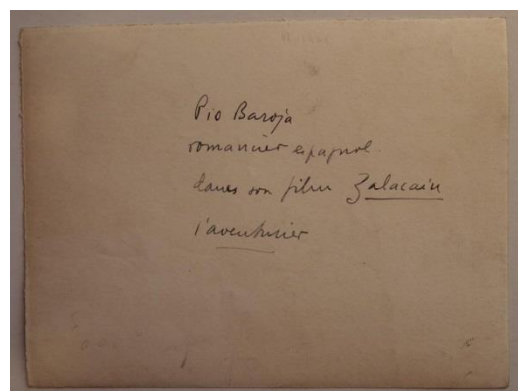 Pio Baroja
romancier espagnol
dans son film Zalacain
l'aventurier